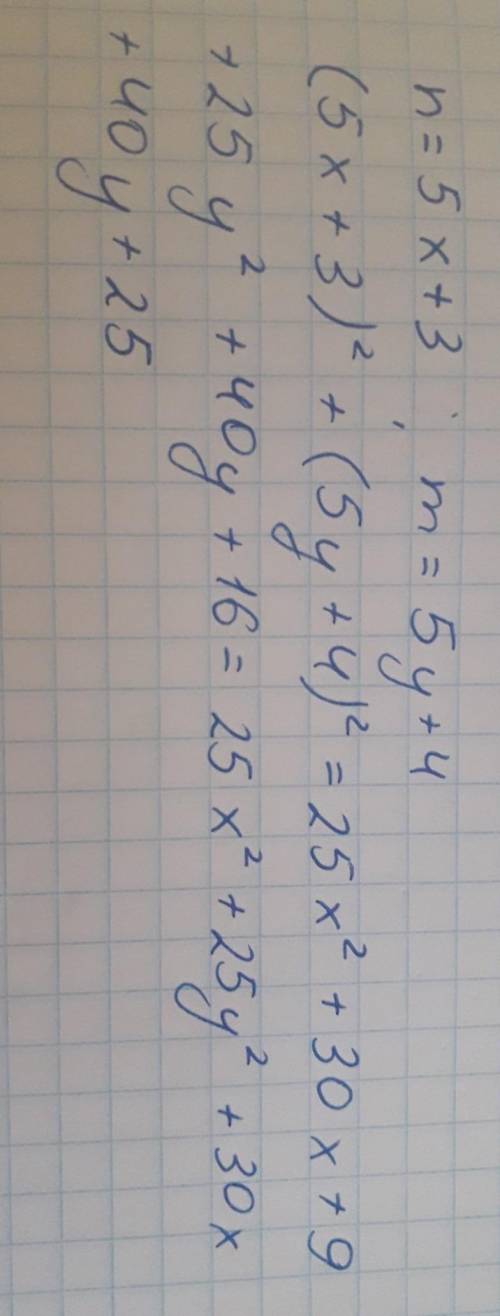 n = 5x + 3, m = 5y + 4
(5x + 3)² + (5y + 4)² = 25x² + 30x + 9
+ 25y² + 40y + 16 = 25x² + 25y² + 30x
+ 40y + 25